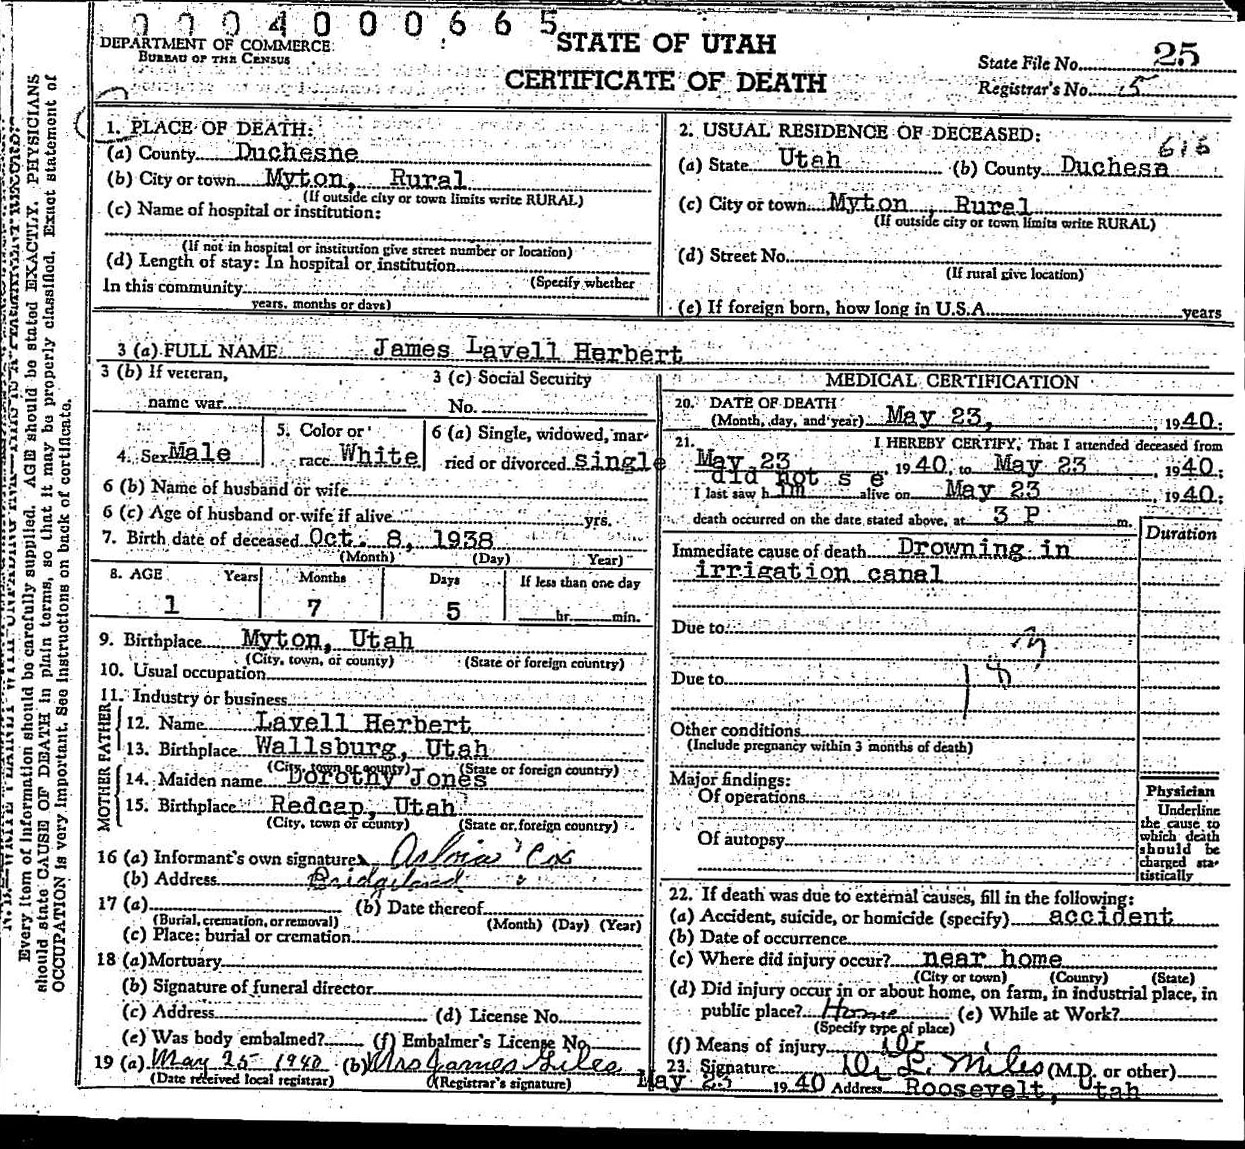 0 0 0 4 0 0 0 6 6 5
DEPARTMENT OF COMMERCE
BUREAU OF THE CENSUS
STATE OF UTAH
CERTIFICATE OF DEATH
State File No. 25
Registrar's No. 5
1. PLACE OF DEATH:
(a) County Duchesne
(b) City or town Myton, Rural
(If outside city or town limits write RURAL)
(c) Name of hospital or institution:
(If not in hospital or institution give street number or location)
(d) Length of stay: In hospital or institution
(Specify whether
In this community
years, months or days)
2. USUAL RESIDENCE OF DECEASED:
(a) State Utah (b) County Duchesn
(c) City or town Myton, Rural
(If outside city or town limits write RURAL)
(d) Street No.
(If rural give location)
(e) If foreign born, how long in U.S.A. years
3 (a) FULL NAME James Lavell Herbert
3 (b) If veteran,
name war
3 (c) Social Security
No.
4. Sex Male
5. Color or
race White
6 (a) Single, widowed, mar-
ried or divorced Single
6 (b) Name of husband or wife
6 (c) Age of husband or wife if alive yrs.
7. Birth date of deceased Oct. 8, 1938
(Month) (Day) Year)
8. AGE Years Months Days If less than one day
1 7 5 hr. min.
9. Birthplace Myton, Utah
(City, town, or county) (State or foreign country)
10. Usual occupation
11. Industry or business
FATHER
12. Name Lavell Herbert
13. Birthplace Wallsburg, Utah
(City, town or county) (State or foreign country)
MOTHER
14. Maiden name Dorothy Jones
15. Birthplace Redcap, Utah
(City, town or county) (State or foreign country)
16 (a) Informant's own signature Cox
(b) Address Bridgeland
17 (a) (b) Date thereof
(Burial, cremation, or removal) (Month) (Day) (Year)
(c) Place: burial or cremation
18 (a) Mortuary
(b) Signature of funeral director
(c) Address (d) License No.
(e) Was body embalmed? (f) Embalmer's License No.
19 (a) May 25 1940 (b) Mrs James Giles
(Date received local registrar) (Registrar's signature)
MEDICAL CERTIFICATION
20. DATE OF DEATH
(Month, day, and year) May 23, 1940.
21. I HEREBY CERTIFY, That I attended deceased from
May 23 1940, to May 23, 1940;
did not s e
I last saw him alive on May 23, 1940;
death occurred on the date stated above, at 3 P m.
Duration
Immediate cause of death Drowning in
irrigation canal
Due to
Due to
Other conditions
(Include pregnancy within 3 months of death)
Major findings:
Of operations
Of autopsy
Physician
Underline
the cause to
which death
should be
charged sta-
tistically
22. If death was due to external causes, fill in the following:
(a) Accident, suicide, or homicide (specify) accident
(b) Date of occurrence
(c) Where did injury occur? near home
(City or town) (County) (State)
(d) Did injury occur in or about home, on farm, in industrial place, in
public place? Home (e) While at Work?
(Specify type of place)
(f) Means of injury
23. Signature L. Miles (M.D. or other)
May 23 1940 Address Roosevelt, Utah
Every item of information should be carefully supplied. AGE should be stated EXACTLY. PHYSICIANS
should state CAUSE OF DEATH in plain terms, so that it may be properly classified. Exact statement of
OCCUPATION is very important. See instructions on back of certificate.